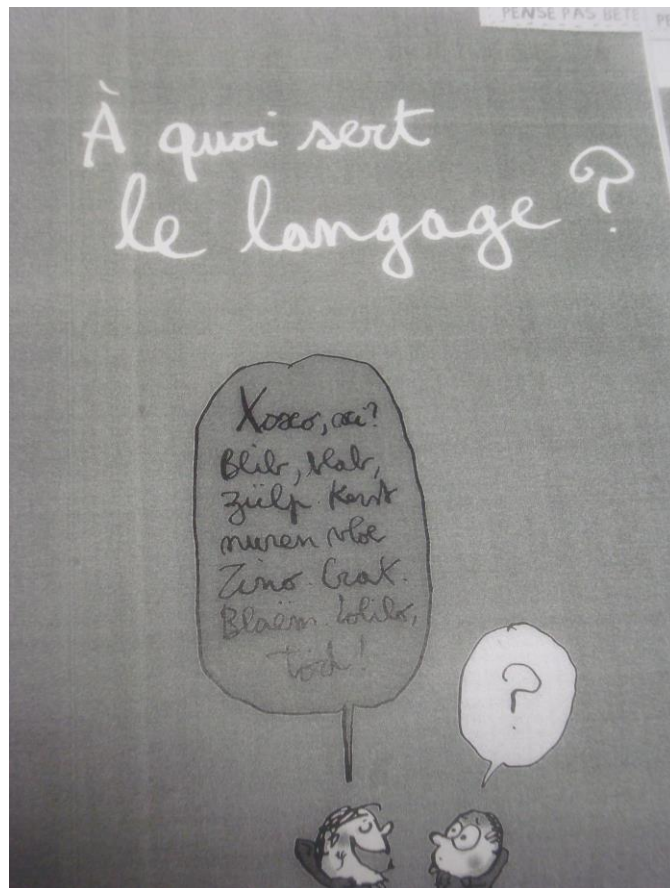 PENSE PAS BÊTE
À quoi sert
le langage ?
Xoxeo, xi?
Blib, blab,
zülp. Kerst
nuren vloe
Zino. Crak.
Blaëm. Lolilo,
töch!
?